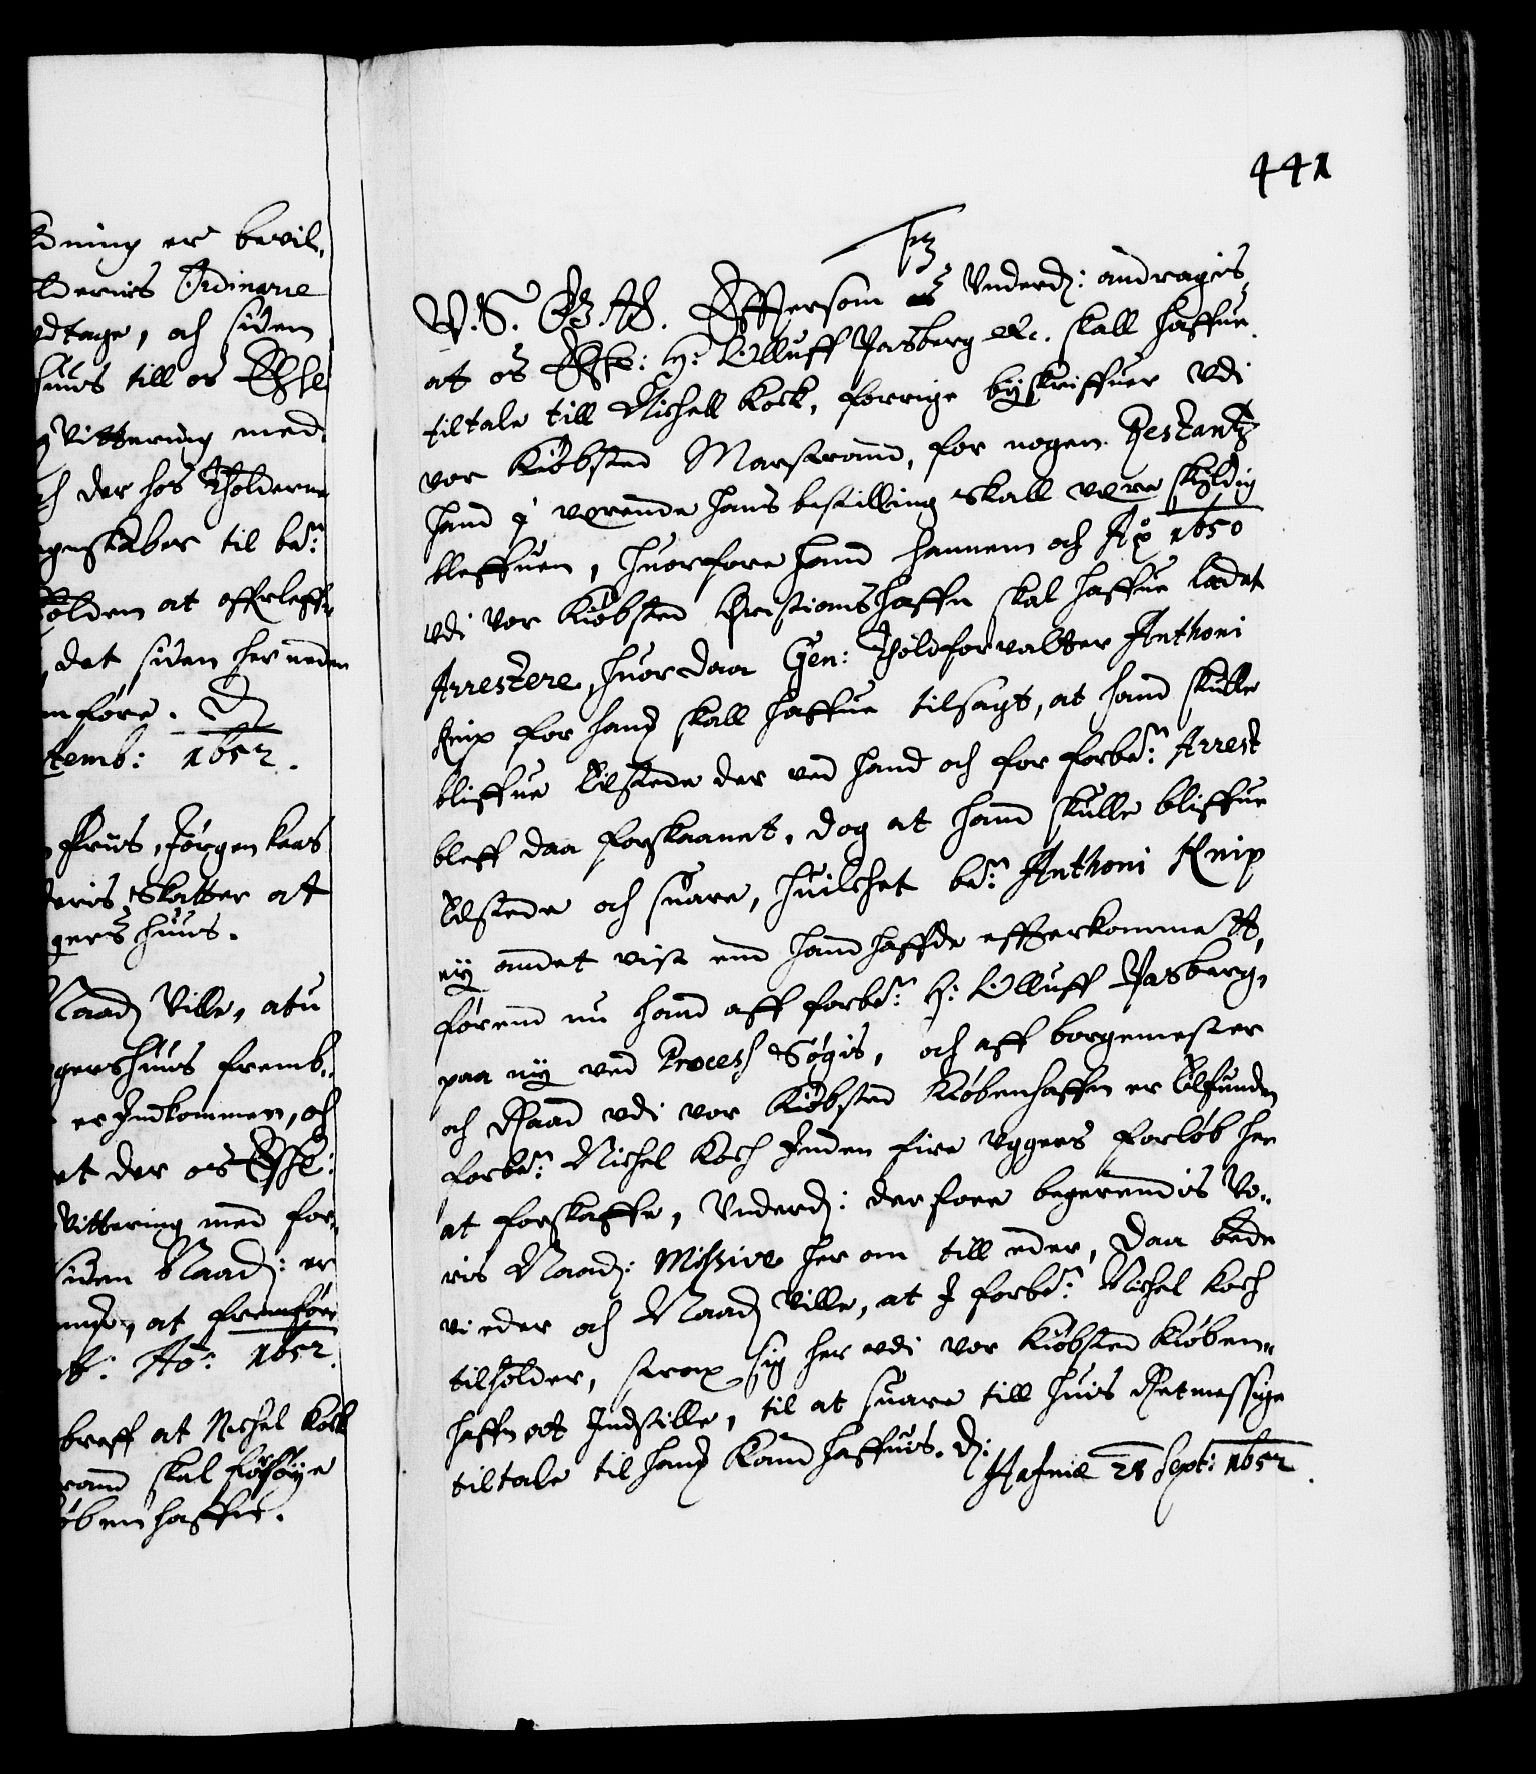 441
ning er bevil„
lderris Ordinarie
dtage, och siden
huus till os Elske
qvittering med
ch der hos Tholderne
genskaber til be:te
tholden at offrleff„
det siden her neden
mføre. D
temb: 1652.
Friis, Jørgen Kaas
deris Skatter at
gers huus.
Naad Ville, at u
gershuus fremb„
er Indkommen, och
et der os Elskl:
vittering med for„
siden Naad: er
at fremføre
Ao: 1652.
breff at Michel Kock
rand skal forføye
øbenhaffn.
V. S. G. A. Effterson os Underd: andragis,
at os Elskl: H: Olluff Parsberg etc. skall haffue
tiltale till Michell Kock, forrige byskriffuer udi
vor Kiøbsted Marstrand, for nogen Restantz
hand i verende hans bestilling skall vere skyldig
bleffuen, huorfore hand hannem och Ao 1650
udi vor Kiøbsted Christianshaffn skal haffue ladet
Arrestere, huor daa Gen: Tholdforvalter Anthoni
Knip for hans skall haffue tilsagt, at hand skulle
bliffue tilstede der ved hand och for forbe:te Arrest
bleff daa forskaanet, dog at hand skulle bliffue
tilstede och suare, huilchet be:te Anthoni Knip
ey andet vist end hand haffde effterkommett,
førend nu hand aff forbe:te H: Olluff Parsberg,
paa ny ved Process Søgis, och aff borgemester
och Raad udi vor Kiøbsted Kiøbenhaffn er tilfunden
forbe:te Michel Koch Inden fire uggers forløb her
at forskaffe, Underd: derfore begerendis Vo„
ris Naad: Missive her om till eder, Daa bede
vi eder och Naad Ville, at I forbe:te Michel Koch
tilholder, strax sig her udi vor Kiøbsted Kiøben„
haffn at Indstille, til at suare till huis Retmessige
tiltale til hans kand haffuis. D:
Hafniæ 28 Sept: 1652.